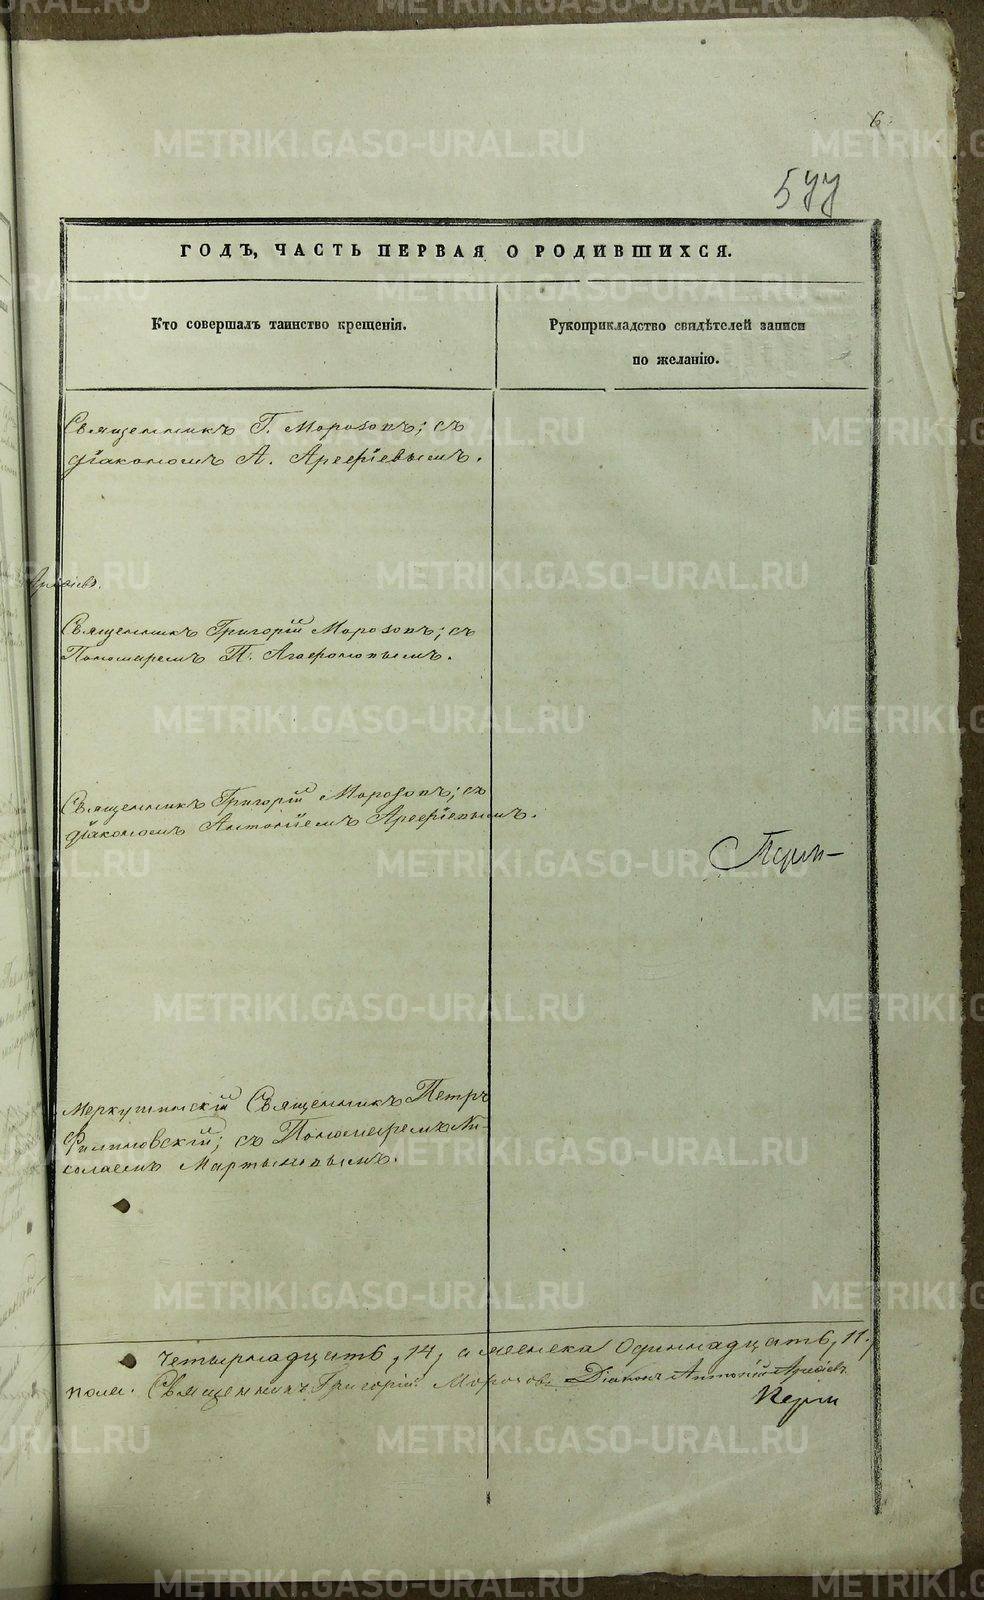 6
577
ГОДЪ, ЧАСТЬ ПЕРВАЯ О РОДИВШИХСЯ.
Кто совершалъ таинство крещенія.
Рукоприкладство свидѣтелей записи
по желанію.
Священникъ Г. Морозовъ; съ
діакономъ А. Арефіевымъ.
Священникъ Григорій Морозовъ; съ
Пономаремъ П. Агафоновымъ.
Священникъ Григорій Морозовъ; съ
діакономъ Антоніемъ Арефіевымъ.
Меркушинскій Священникъ Петръ
Филиповскій; съ Пономаремъ Ни-
колаемъ Мартыновымъ.
четырнадцать, 14, а женска одиннадцать, 11,
пола. Священникъ Григорій Морозовъ Діаконъ Антоній
METRIKI.GASO-URAL.RU